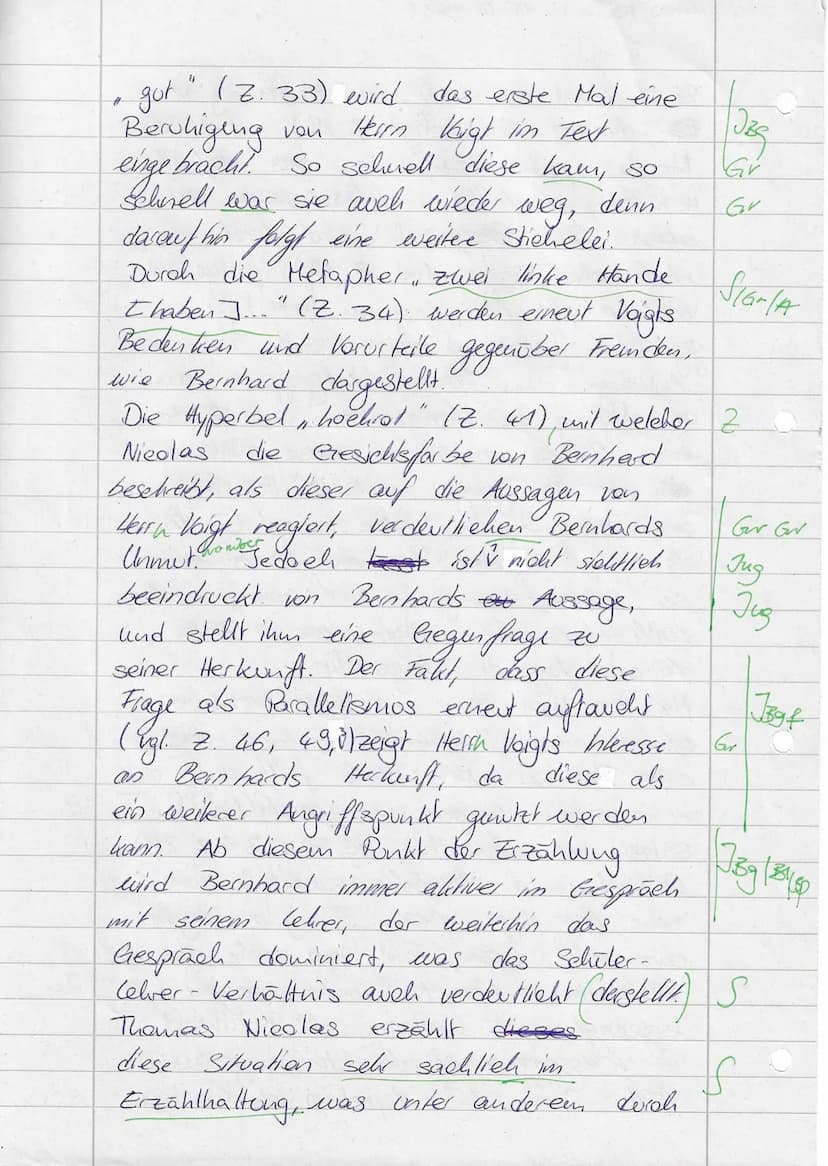 „gut" (Z. 33) wird das erste Mal eine
Beruhigung von Herrn Voigt im Text
eingebracht. So schnell diese kam, so
schnell war sie auch wieder weg, denn
daraufhin folgt eine weitere Stichelei.
Durch die Metapher „zwei linke Hände
[haben]..." (Z. 34) werden erneut Voigts
Bedenken und Vorurteile gegenüber Fremden,
wie Bernhard dargestellt.
Die Hyperbel „hochrot" (Z. 41), mit welcher
Nicolas die Gesichtsfarbe von Bernhard
beschreibt, als dieser auf die Aussagen von
Herrn Voigt reagiert, verdeutlichen Bernhards
Unmut. Jedoch ist nicht sichtlich
beeindruckt von Bernhards Aussage,
und stellt ihm eine Gegenfrage zu
seiner Herkunft. Der Fakt, dass diese
Frage als Parallelismos erneut auftaucht
(vgl. Z. 46, 49,) zeigt Herrn Voigts Interesse
an Bernhards Herkunft, da diese als
ein weiterer Angriffspunkt genutzt werden
kann. Ab diesem Punkt der Erzählung
wird Bernhard immer aktiver im Gespräch
mit seinem Lehrer, der weiterhin das
Gespräch dominiert, was das Schüler-
Lehrer-Verhältnis auch verdeutlicht (darstellt.)
Thomas Nicolas erzählt dieses
diese Situation sehr sachlich im
Erzählhaltung, was unter anderem durch
JBg
Gr
Gr
S/Gr/A
Z
Gr Gr
Jug
Jug
JBgf
Gr
S
S